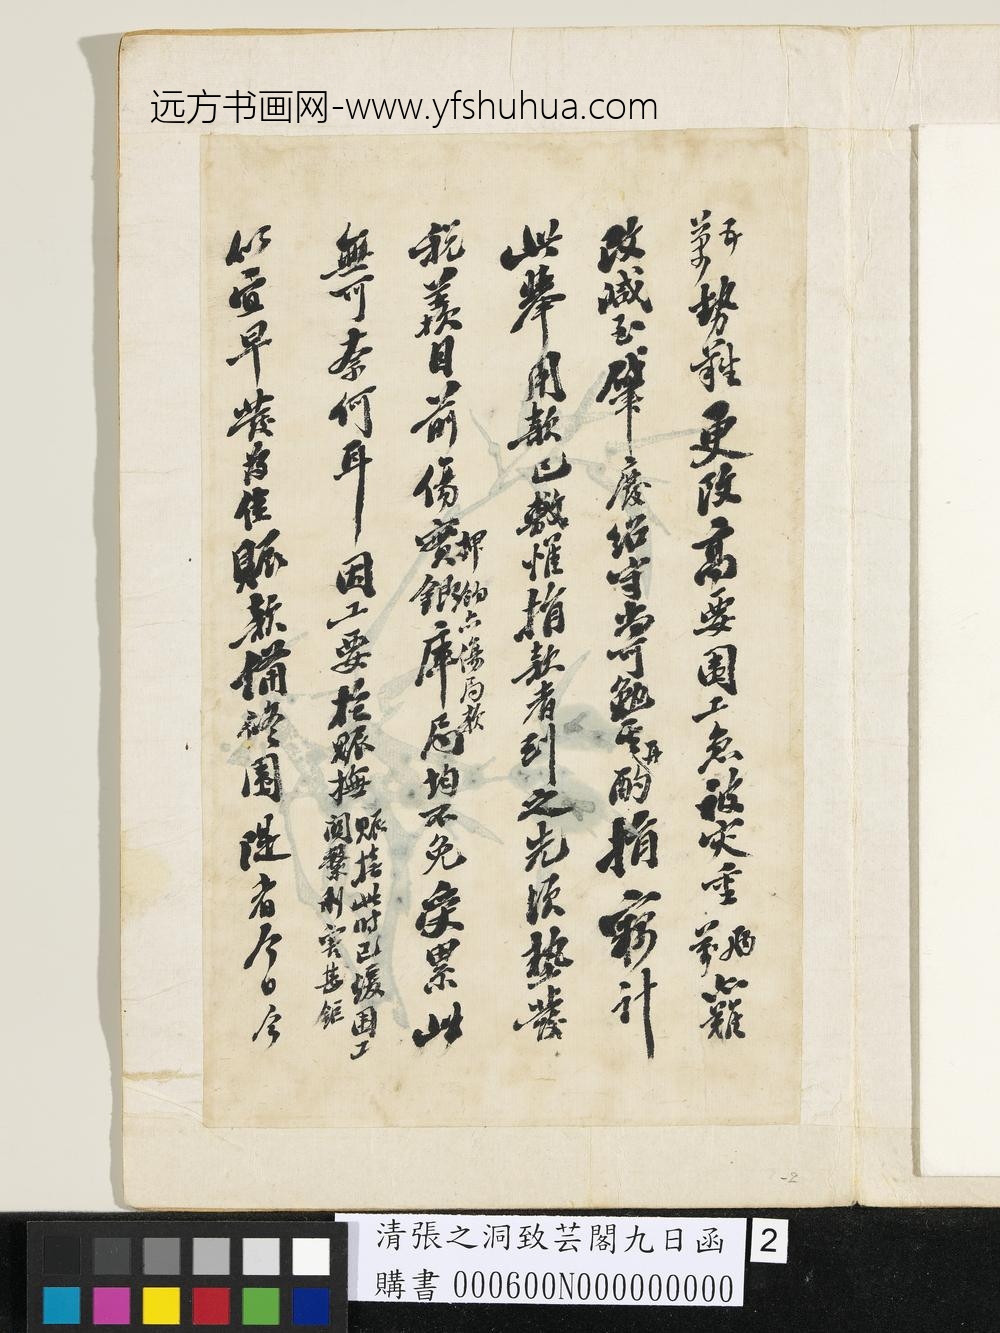 远方书画网-www.yfshuhua.com
萬勢難更改高要圍工急被災重萬難
改減至肇慶紹守尚可勉其酌捐籌計
此舉用款已數惟捐款者到之先須墊發
稅羨目前傷實銀庫局均不免受累此
押餉亦傷局款
無可奈何耳因工要於賑撫
賑捐此時已緩圍工
關繫利害甚鉅
仍宜早發為佳賑款備修圍隄者今日今
-2
清張之洞致芸閣九日函
購書 000600N000000000
2